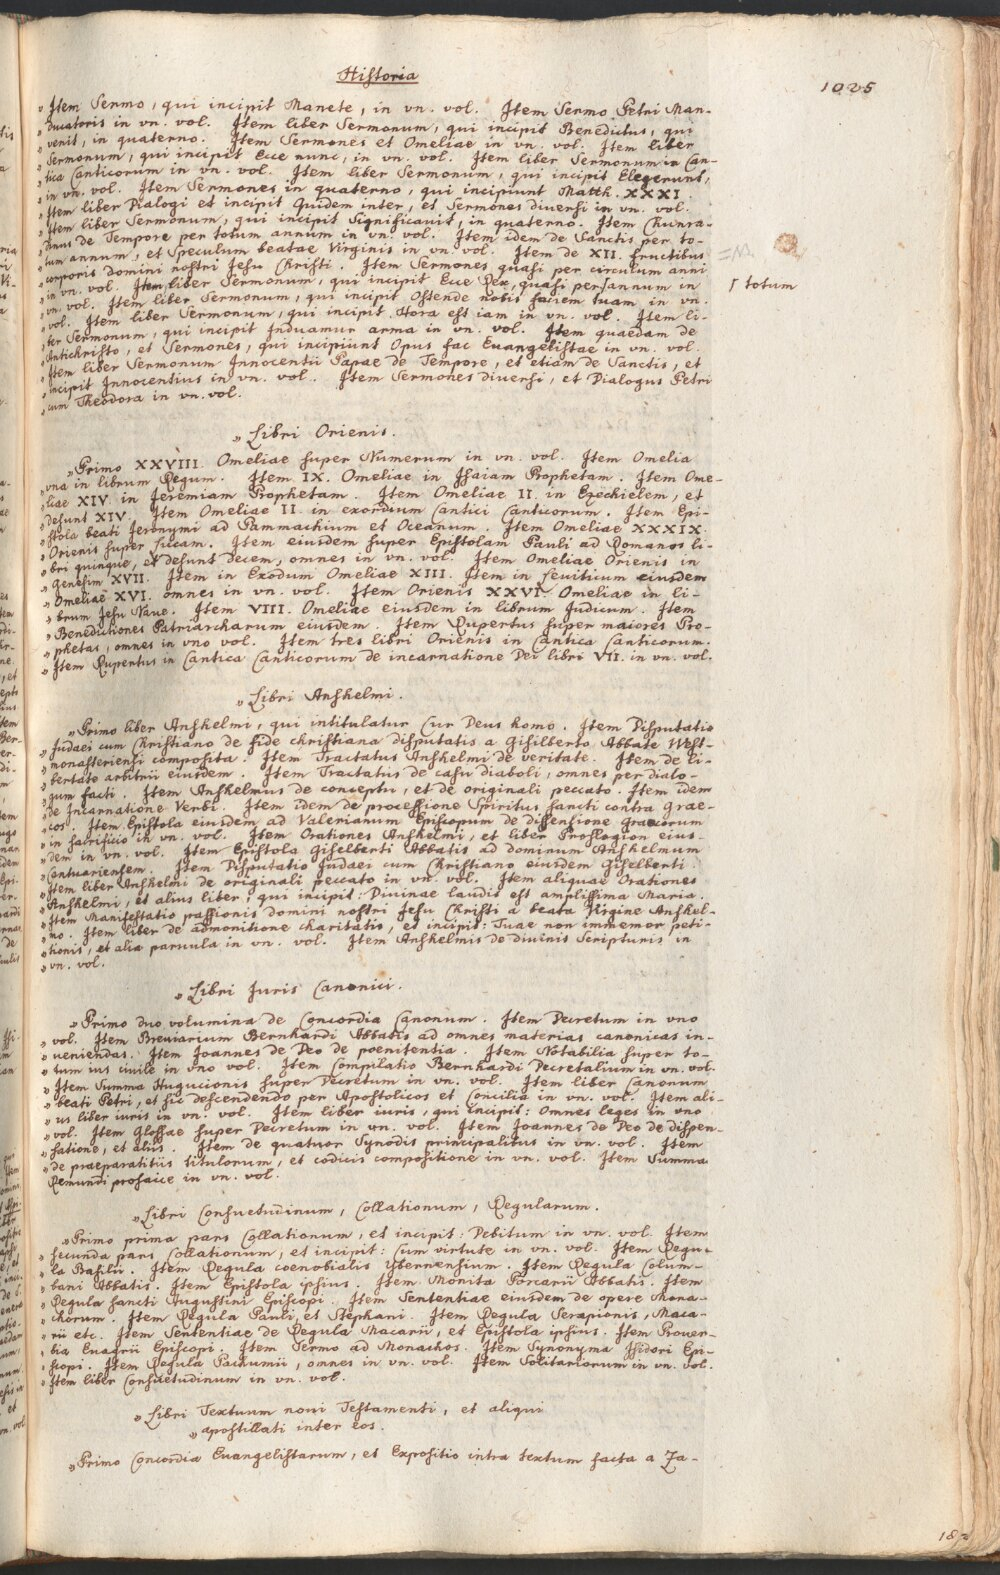 Historia
1025
„ Item Sermo, qui incipit Manete, in vn. vol. Item Sermo Petri Man-
„ ducatoris in vn. vol. Item liber Sermonum, qui incipit Benedictus, qui
„ venit, in quaterno. Item Sermones et Omeliae in vn. vol. Item liber
„ Sermonum, qui incipit Ecce nunc, in vn. vol. Item liber Sermonum in Can-
„ tica Canticorum in vn. vol. Item liber Sermonum, qui incipit Elegerunt,
„ in vn. vol. Item Sermones in quaterno, qui incipiunt Matth. XXXI.
„ Item liber Dialogi et incipit Quidem inter, et Sermones diuersi in vn. vol.
„ Item liber Sermonum, qui incipit Significauit, in quaterno. Item Chunra-
„ dinus de Tempore per totum annum in vn. vol. Item idem de Sanctis per to-
„ tum annum, et Speculum beatae Virginis in vn. vol. Item de XII. fructibus
„ corporis domini nostri Jesu Christi. Item Sermones quasi per circulum anni
„ in vn. vol. Item liber Sermonum, qui incipit Ecce Rex, quasi per annum in
ſ totum
„ vn. vol. Item liber Sermonum, qui incipit Ostende nobis faciem tuam in vn.
„ vol. Item liber Sermonum, qui incipit Hora est iam in vn. vol. Item li-
„ ber Sermonum, qui incipit Induamur arma in vn. vol. Item quaedam de
„ Antichristo, et Sermones, qui incipiunt Opus fac Euangelistae in vn. vol.
„ Item liber Sermonum Innocentii Papae de Tempore, et etiam de Sanctis, et
„ incipit Innocentius in vn. vol. Item Sermones diuersi, et Dialogus Petri
„ cum Theodora in vn. vol.
„ Libri Orienis.
„ Primo XXVIII. Omeliae super Numerum in vn. vol. Item Omelia
„ vna in librum Regum. Item IX. Omeliae in Isaiam Prophetam. Item Ome-
„ liae XIV. in Jeremiam Prophetam. Item Omeliae II. in Ezechielem, et
„ desunt XIV. Item Omeliae II. in exordium Cantici Canticorum. Item Epi-
„ stola beati Jeronymi ad Pammachium et Oceanum. Item Omeliae XXXIX.
„ Orienis super Lucam. Item eiusdem super Epistolam Pauli ad Romanos li-
„ bri quinque, et desunt decem, omnes in vn. vol. Item Omeliae Orienis in
„ Genesim XVII. Item in Exodum Omeliae XIII. Item in Leuiticum eiusdem
„ Omeliae XVI. omnes in vn. vol. Item Orienis XXVI. Omeliae in li-
„ brum Jesu Naue. Item VIII. Omeliae eiusdem in librum Judicum. Item
„ Benedictiones Patriarcharum eiusdem. Item Rupertus super maiores Pro-
„ phetas, omnes in vno vol. Item tres libri Orienis in Cantica Canticorum.
„ Item Rupertus in Cantica Canticorum de incarnatione Dei libri VII. in vn. vol.
„ Libri Anshelmi.
„ Primo liber Anshelmi, qui intitulatur Cur Deus homo. Item Disputatio
„ Judaei cum Christiano de fide christiana disputatis a Gisilberto Abbate West-
„ monasteriensi composita. Item Tractatus Anshelmi de veritate. Item de li-
„ bertate arbitrii eiusdem. Item Tractatus de casu diaboli, omnes per dialo-
„ gum facti. Item Anshelmus de conceptu, et de originali peccato. Item idem
„ de Incarnatione Verbi. Item idem de processione Spiritus sancti contra Grae-
„ cos. Item Epistola eiusdem ad Valerianum Episcopum de dissensione Graecorum
„ in sacrificio in vn. vol. Item Orationes Anshelmi, et liber Proslogion eius-
„ dem in vn. vol. Item Epistola Giselberti Abbatis ad dominum Anshelmum
„ Cantuariensem. Item Disputatio Judaei cum Christiano eiusdem Giselberti.
„ Item liber Anshelmi de originali peccato in vn. vol. Item aliquae Orationes
„ Anshelmi, et alius liber, qui incipit: Diuinae laudis est amplissima Maria.
„ Item Manifestatio passionis domini nostri Jesu Christi a beata Virgine Anshel-
„ mo. Item liber de admonitione charitatis, et incipit: Tuae non immemor peti-
„ tionis, et alia paruula in vn. vol. Item Anshelmis de diuinis Scripturis in
„ vn. vol.
„ Libri Juris Canonici.
„ Primo duo volumina de Concordia Canonum. Item Decretum in vno
„ vol. Item Breuiarium Bernhardi Abbatis ad omnes materias canonicas in-
„ ueniendas. Item Joannes de Deo de poenitentia. Item Notabilia super to-
„ tum ius ciuile in vno vol. Item Compilatio Bernhardi Decretalium in vn. vol.
„ Item Summa Hugucionis super Decretum in vn. vol. Item liber Canonum
„ beati Petri, et sic descendendo per Apostolicos et Concilia in vn. vol. Item ali-
„ us liber iuris in vn. vol. Item liber iuris, qui incipit: Omnes leges in vno
„ vol. Item Glossae super Decretum in vn. vol. Item Joannes de Deo de dispen-
„ satione, et aliis. Item de quatuor Synodis principalibus in vn. vol. Item
„ de praeparatitiis titulorum, et codicis compositione in vn. vol. Item Summa
Remundi prosaice in vn. vol.
„ Libri Consuetudinum, Collationum, Regularum.
„ Primo prima pars Collationum, et incipit: Debitum in vn. vol. Item
„ secunda pars Collationum, et incipit: Cum virtute in vn. vol. Item Regu-
„ la Basilii. Item Regula coenobialis ybernensium. Item Regula Colum-
„ bani Abbatis. Item Epistola ipsius. Item Monita Porcarii Abbatis. Item
„ Regula sancti Augustini Episcopi. Item Sententiae eiusdem de opere Mona-
„ chorum. Item Regula Pauli, et Stephani. Item Regula Serapionis, Maca-
„ rii etc. Item Sententiae de Regula Macarii, et Epistola ipsius. Item Prouer-
„ bia Euagrii Episcopi. Item Sermo ad Monachos. Item Synonyma Isidori Epi-
„ scopi. Item Regula Pachumii, omnes in vn. vol. Item Solitariorum in vn. vol.
„ Item liber Consuetudinum in vn. vol.
„ Libri Textuum noui Testamenti, et aliqui
„ apostillati inter eos.
„ Primo Concordia Euangelistarum, et Expositio intra textum facta a Za-